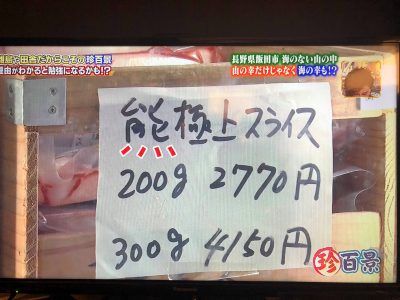 離島や田舎だからこその珍百景
理由がわかると勉強になるかも!?
長野県飯田市 海のない山の中
山の幸だけじゃなく 海の幸も!?
能極上スライス
200g 2770円
300g 4150円
珍百景